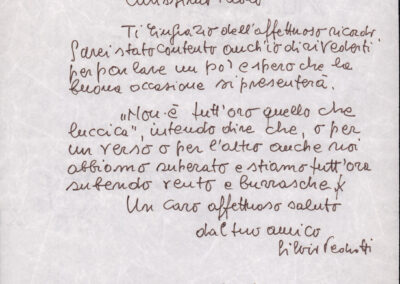 Carissimo
Ti ringrazio dell'affettuoso ricordo.
Sarei stato contento anch'io di rivederti
per parlare un po' e spero che la
buona occasione si presenterà.
„Non è tutt'oro quello che
luccica", intendo dire che, o per
un verso o per l'altro anche noi
abbiamo superato e stiamo tutt'ora
subendo vento e burrasche.
Un caro affettuoso saluto
dal tuo amico
Silvio